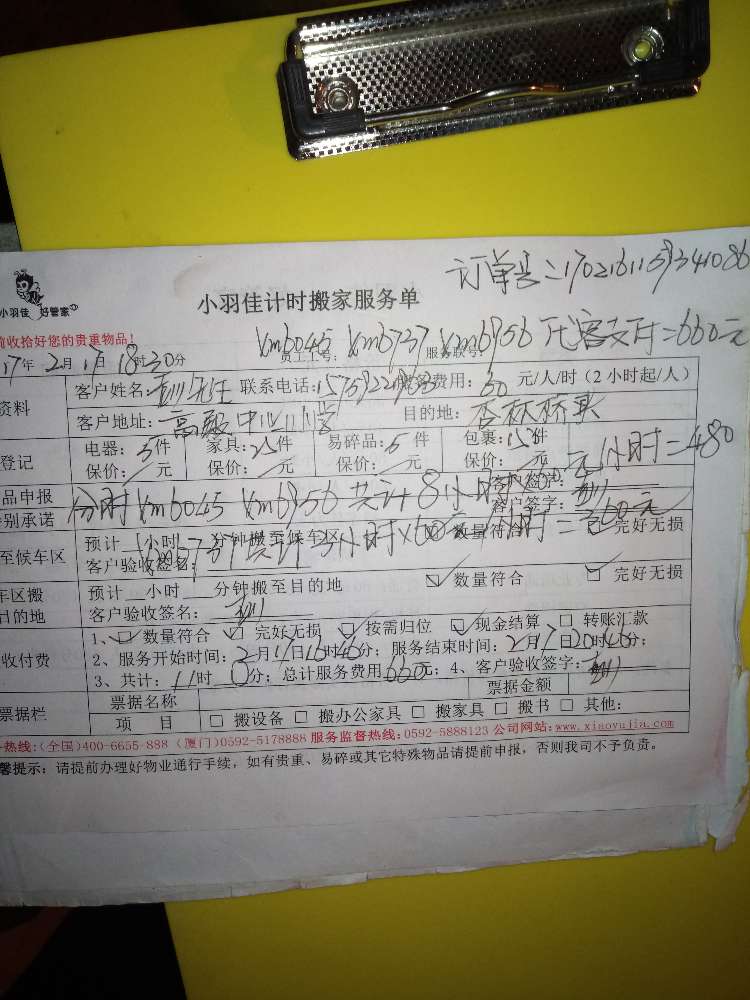 订单号:1702161159341086
小羽佳 好管家
小羽佳计时搬家服务单
前收拾好您的贵重物品!
17年2月17日18时30分 员工工号: km6045 km6737 km6956 服务联号: 代客支付=660元
资料 客户姓名: 联系电话: 费用:60 元/人/时(2小时起/人)
客户地址:高殿中 目的地:杏林桥头
登记 电器:5件 家具:25件 易碎品:5件 包裹:15件
保价: 元 保价: 元 保价: 元 保价: 元
品申报 分时 km6045 km6956 共计8小时 元/小时=480
别承诺 客户签字:
至候车区 预计 小时 分钟搬至候车区 3小时×60 数量符合 完好无损
客户验收签名:
车区搬 预计 小时 分钟搬至目的地 数量符合 完好无损
目的地 客户验收签名:
收付费 1、 数量符合 完好无损 按需归位 现金结算 转账汇款
2、服务开始时间:2月17日16时40分; 服务结束时间:2月17日20时46分;
3、共计:11时0分; 总计服务费用660元; 4、客户验收签字:
票据栏 票据名称 票据金额
项 目 搬设备 搬办公家具 搬家具 搬书 其他:
热线:(全国)400-6655-888 (厦门)0592-5178888 服务监督热线:0592-5888123 公司网站:www.xiaoyujia.com
馨提示:请提前办理好物业通行手续,如有贵重、易碎或其它特殊物品请提前申报,否则我司不予负责。